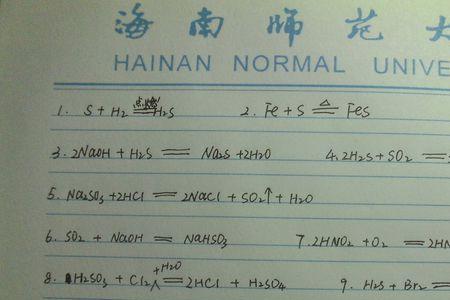 海南师范大
HAINAN NORMAL UNIVE
1. S + H2 点燃 H2S 2. Fe + S △ FeS
3. 2NaOH + H2S = Na2S + 2H2O 4. 2H2S + SO2 =
5. Na2SO3 + 2HCl = 2NaCl + SO2↑ + H2O
6. SO2 + NaOH = NaHSO3 7. 2HNO2 + O2 = 2HN
8. H2SO3 + Cl2 + H2O = 2HCl + H2SO4 9. H2S + Br2 =